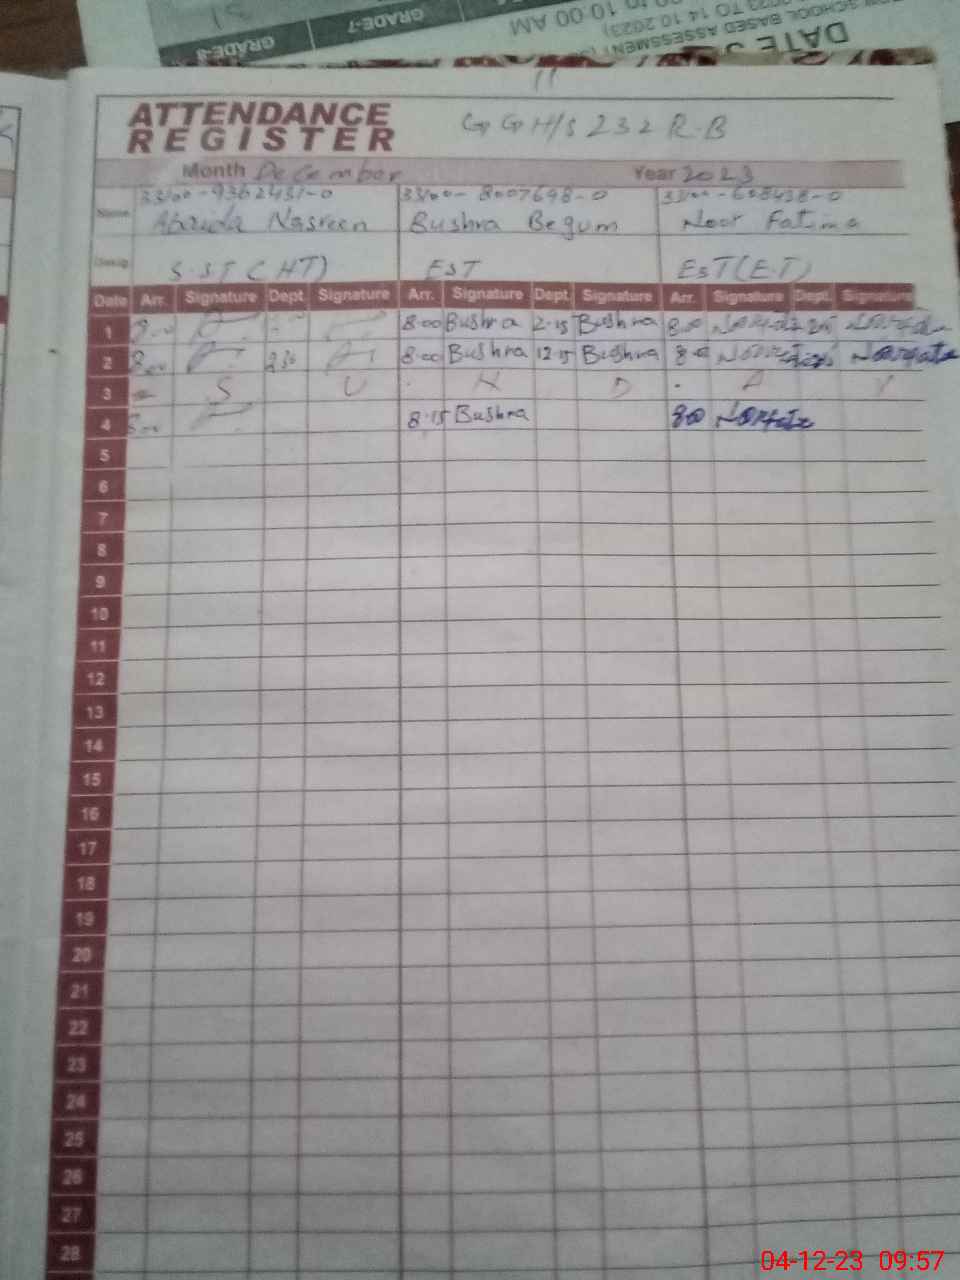 GRADE-8 GRADE-7
DATE S
SCHOOL BASED ASSESSMENT
TO 14 10 2023)
TO 10.00 AM
11
ATTENDANCE
REGISTER
G G H/S 232 R.B
Month December Year 2023
Name 33100-9362431-0 33100-8007698-0
Nasreen Bushra Begum Noor Fatima
Desig. S.ST (HT) EST EST (E.T)
Date Arr. Signature Dept. Signature Arr. Signature Dept. Signature Arr. Signature Dept. Signature
1 8.00 8.00 Bushra 2.15 Bushra 8.00
2 8.00 230 8.00 Bushra 12.15 Bushra 8.00
3 S U N D A Y
4 8.00 8.15 Bushra 8.00
5
6
7
8
9
10
11
12
13
14
15
16
17
18
19
20
21
22
23
24
25
26
27
28
04-12-23 09:57